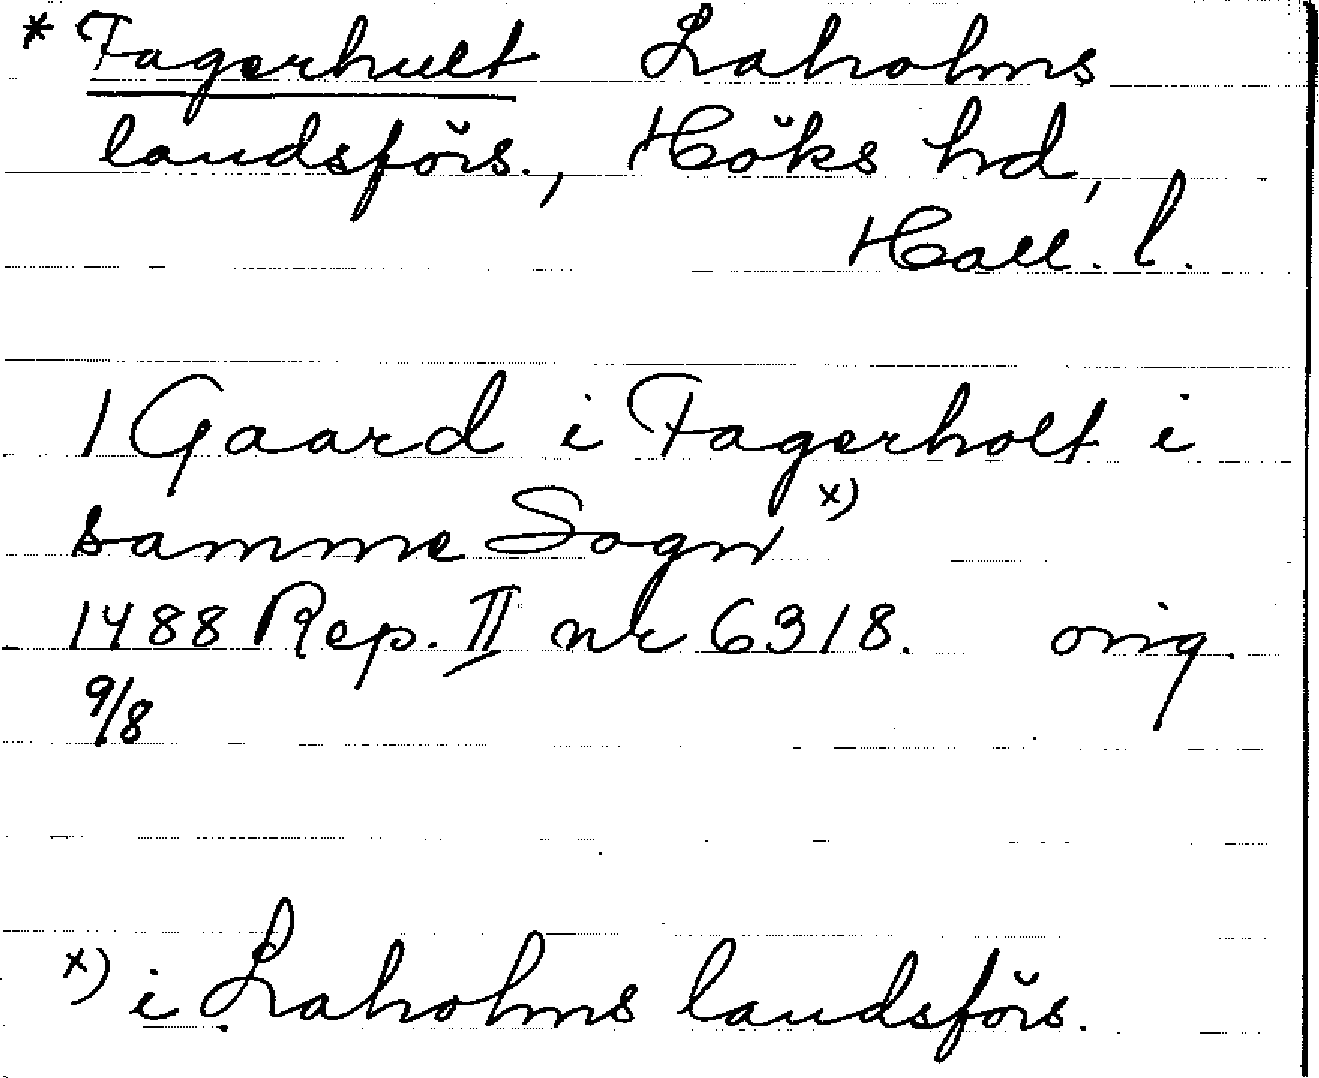 * Fagerhult Laholms
landsförs., Höks hd,
Hall. l.
1 Gaard i Fagerholt i
samme Sogn x)
1488 Rep. II nr 6318. orig.
9/8
x) i Laholms landsförs.